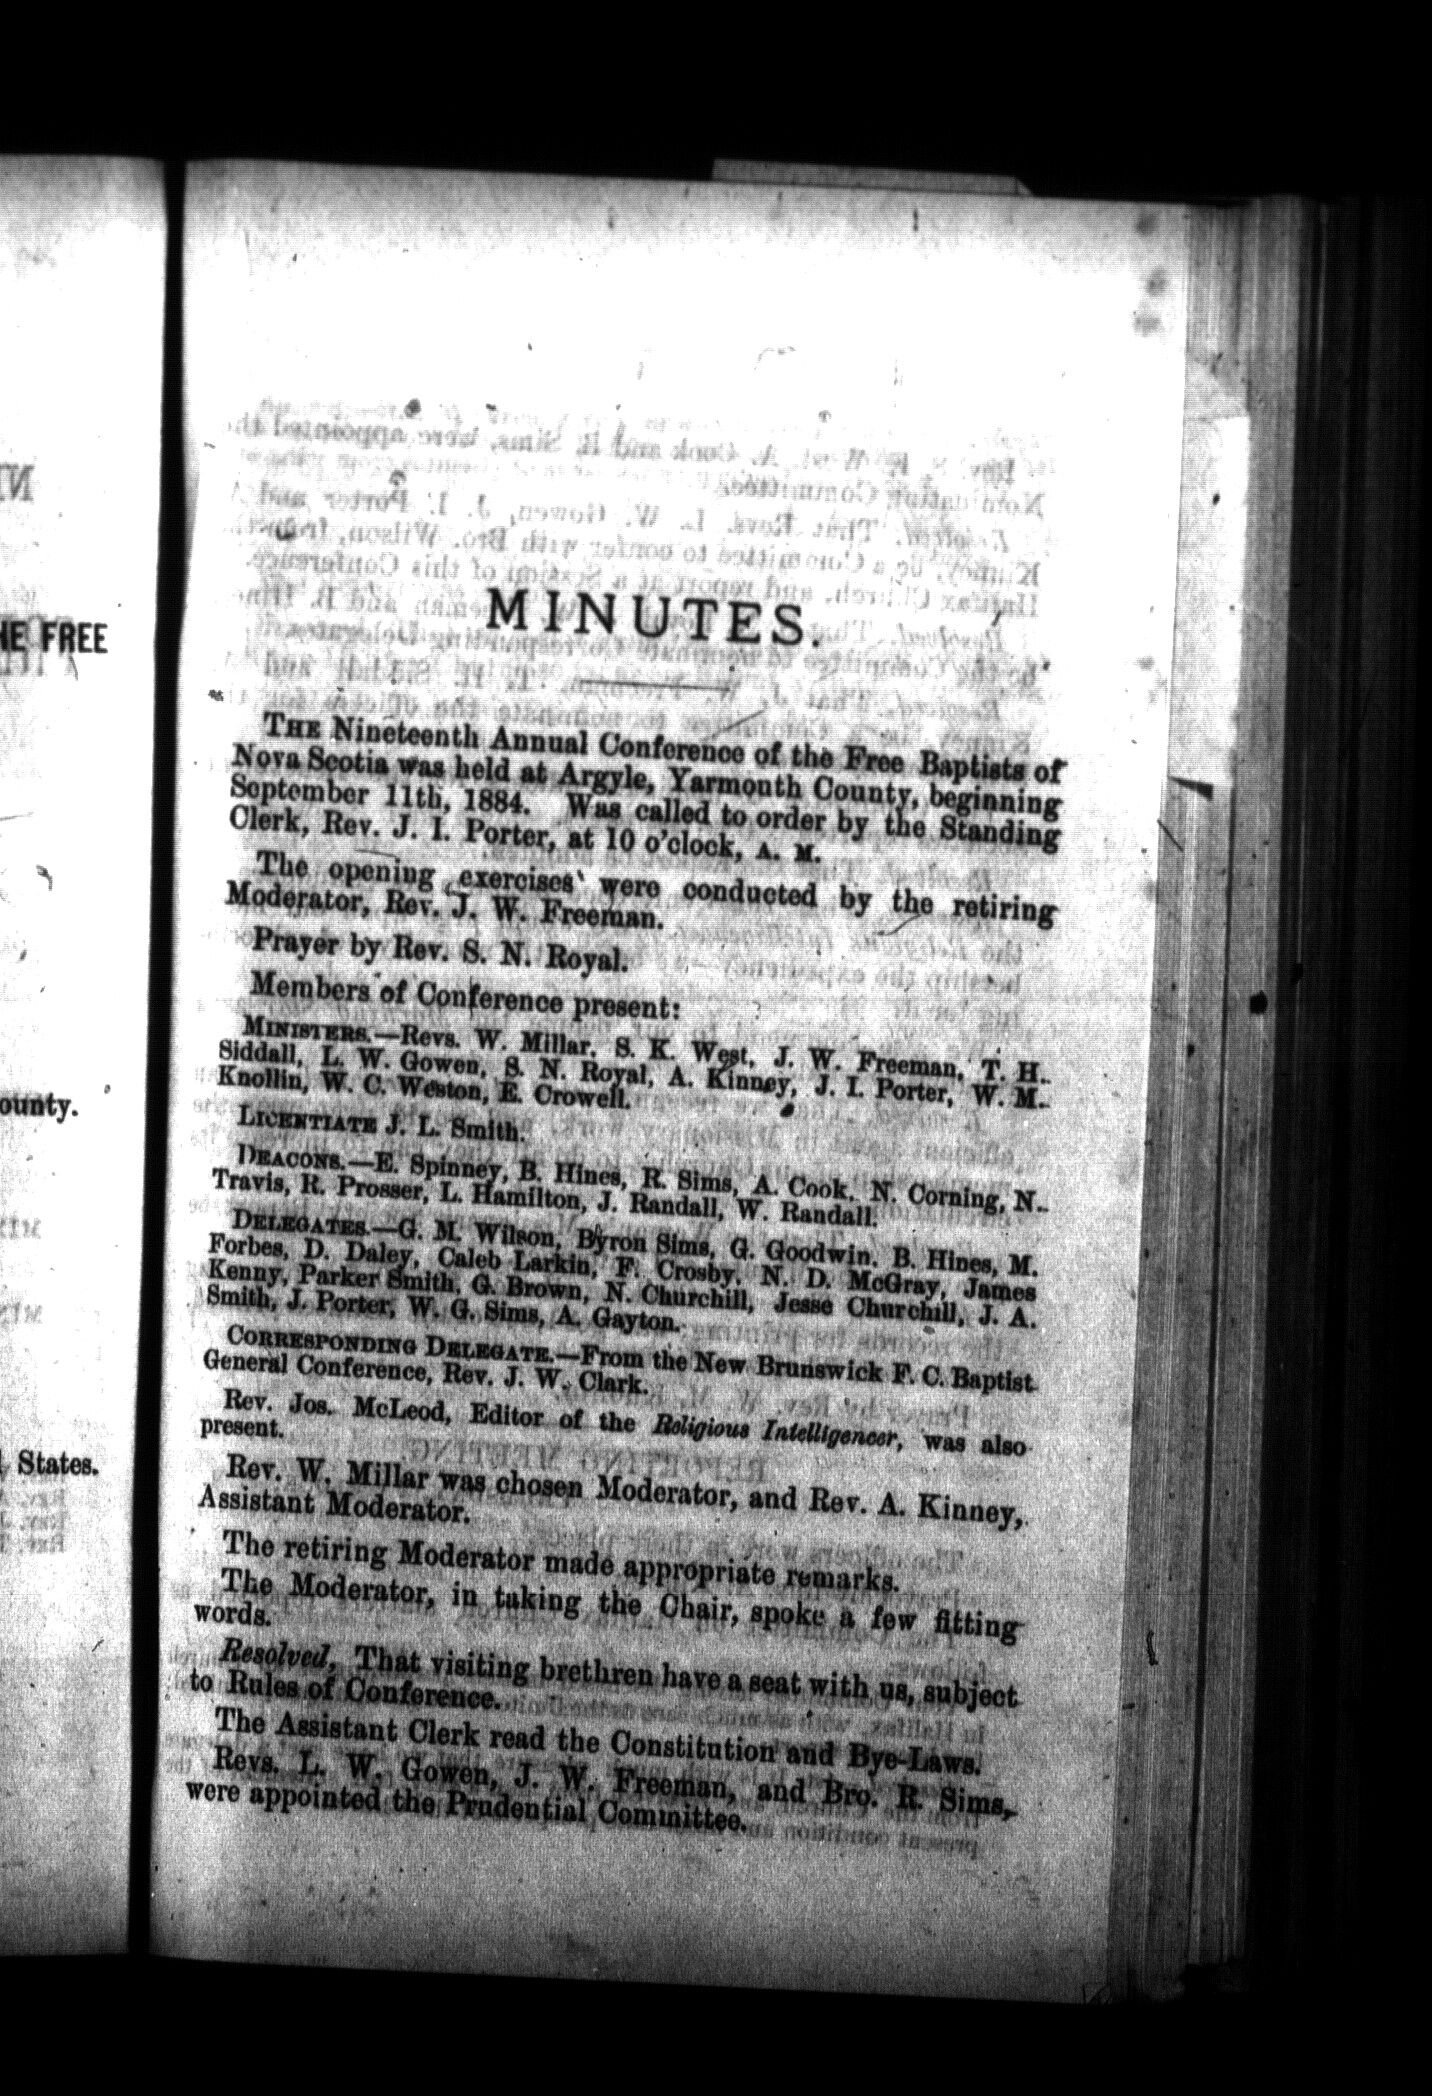 HE FREE
ounty.
States.
MINUTES.
THE Nineteenth Annual Conference of the Free Baptists of
Nova Scotia was held at Argyle, Yarmouth County, beginning
September 11th, 1884. Was called to order by the Standing
Clerk, Rev. J. I. Porter, at 10 o'clock, A. M.
The opening exercises were conducted by the retiring
Moderator, Rev. J. W. Freeman.
Prayer by Rev. S. N. Royal.
Members of Conference present:
MINISTERS.—Revs. W. Millar, S. K. West, J. W. Freeman, T. H.
Siddall, L. W. Gowen, S. N. Royal, A. Kinney, J. I. Porter, W. M.
Knollin, W. C. Weston, E. Crowell.
LICENTIATE J. L. Smith.
DEACONS.—E. Spinney, B. Hines, R. Sims, A. Cook, N. Corning, N.
Travis, R. Prosser, L. Hamilton, J. Randall, W. Randall.
DELEGATES.—G. M. Wilson, Byron Sims, G. Goodwin, B. Hines, M.
Forbes, D. Daley, Caleb Larkin, F. Crosby, N. D. McGray, James
Kenny, Parker Smith, G. Brown, N. Churchill, Jesse Churchill, J. A.
Smith, J. Porter, W. G. Sims, A. Gayton.
CORRESPONDING DELEGATE.—From the New Brunswick F. C. Baptist
General Conference, Rev. J. W. Clark.
Rev. Jos. McLeod, Editor of the Religious Intelligencer, was also
present.
Rev. W. Millar was chosen Moderator, and Rev. A. Kinney,
Assistant Moderator.
The retiring Moderator made appropriate remarks.
The Moderator, in taking the Chair, spoke a few fitting
words.
Resolved, That visiting brethren have a seat with us, subject
to Rules of Conference.
The Assistant Clerk read the Constitution and Bye-Laws.
Revs. L. W. Gowen, J. W. Freeman, and Bro. R. Sims,
were appointed the Prudential Committee.